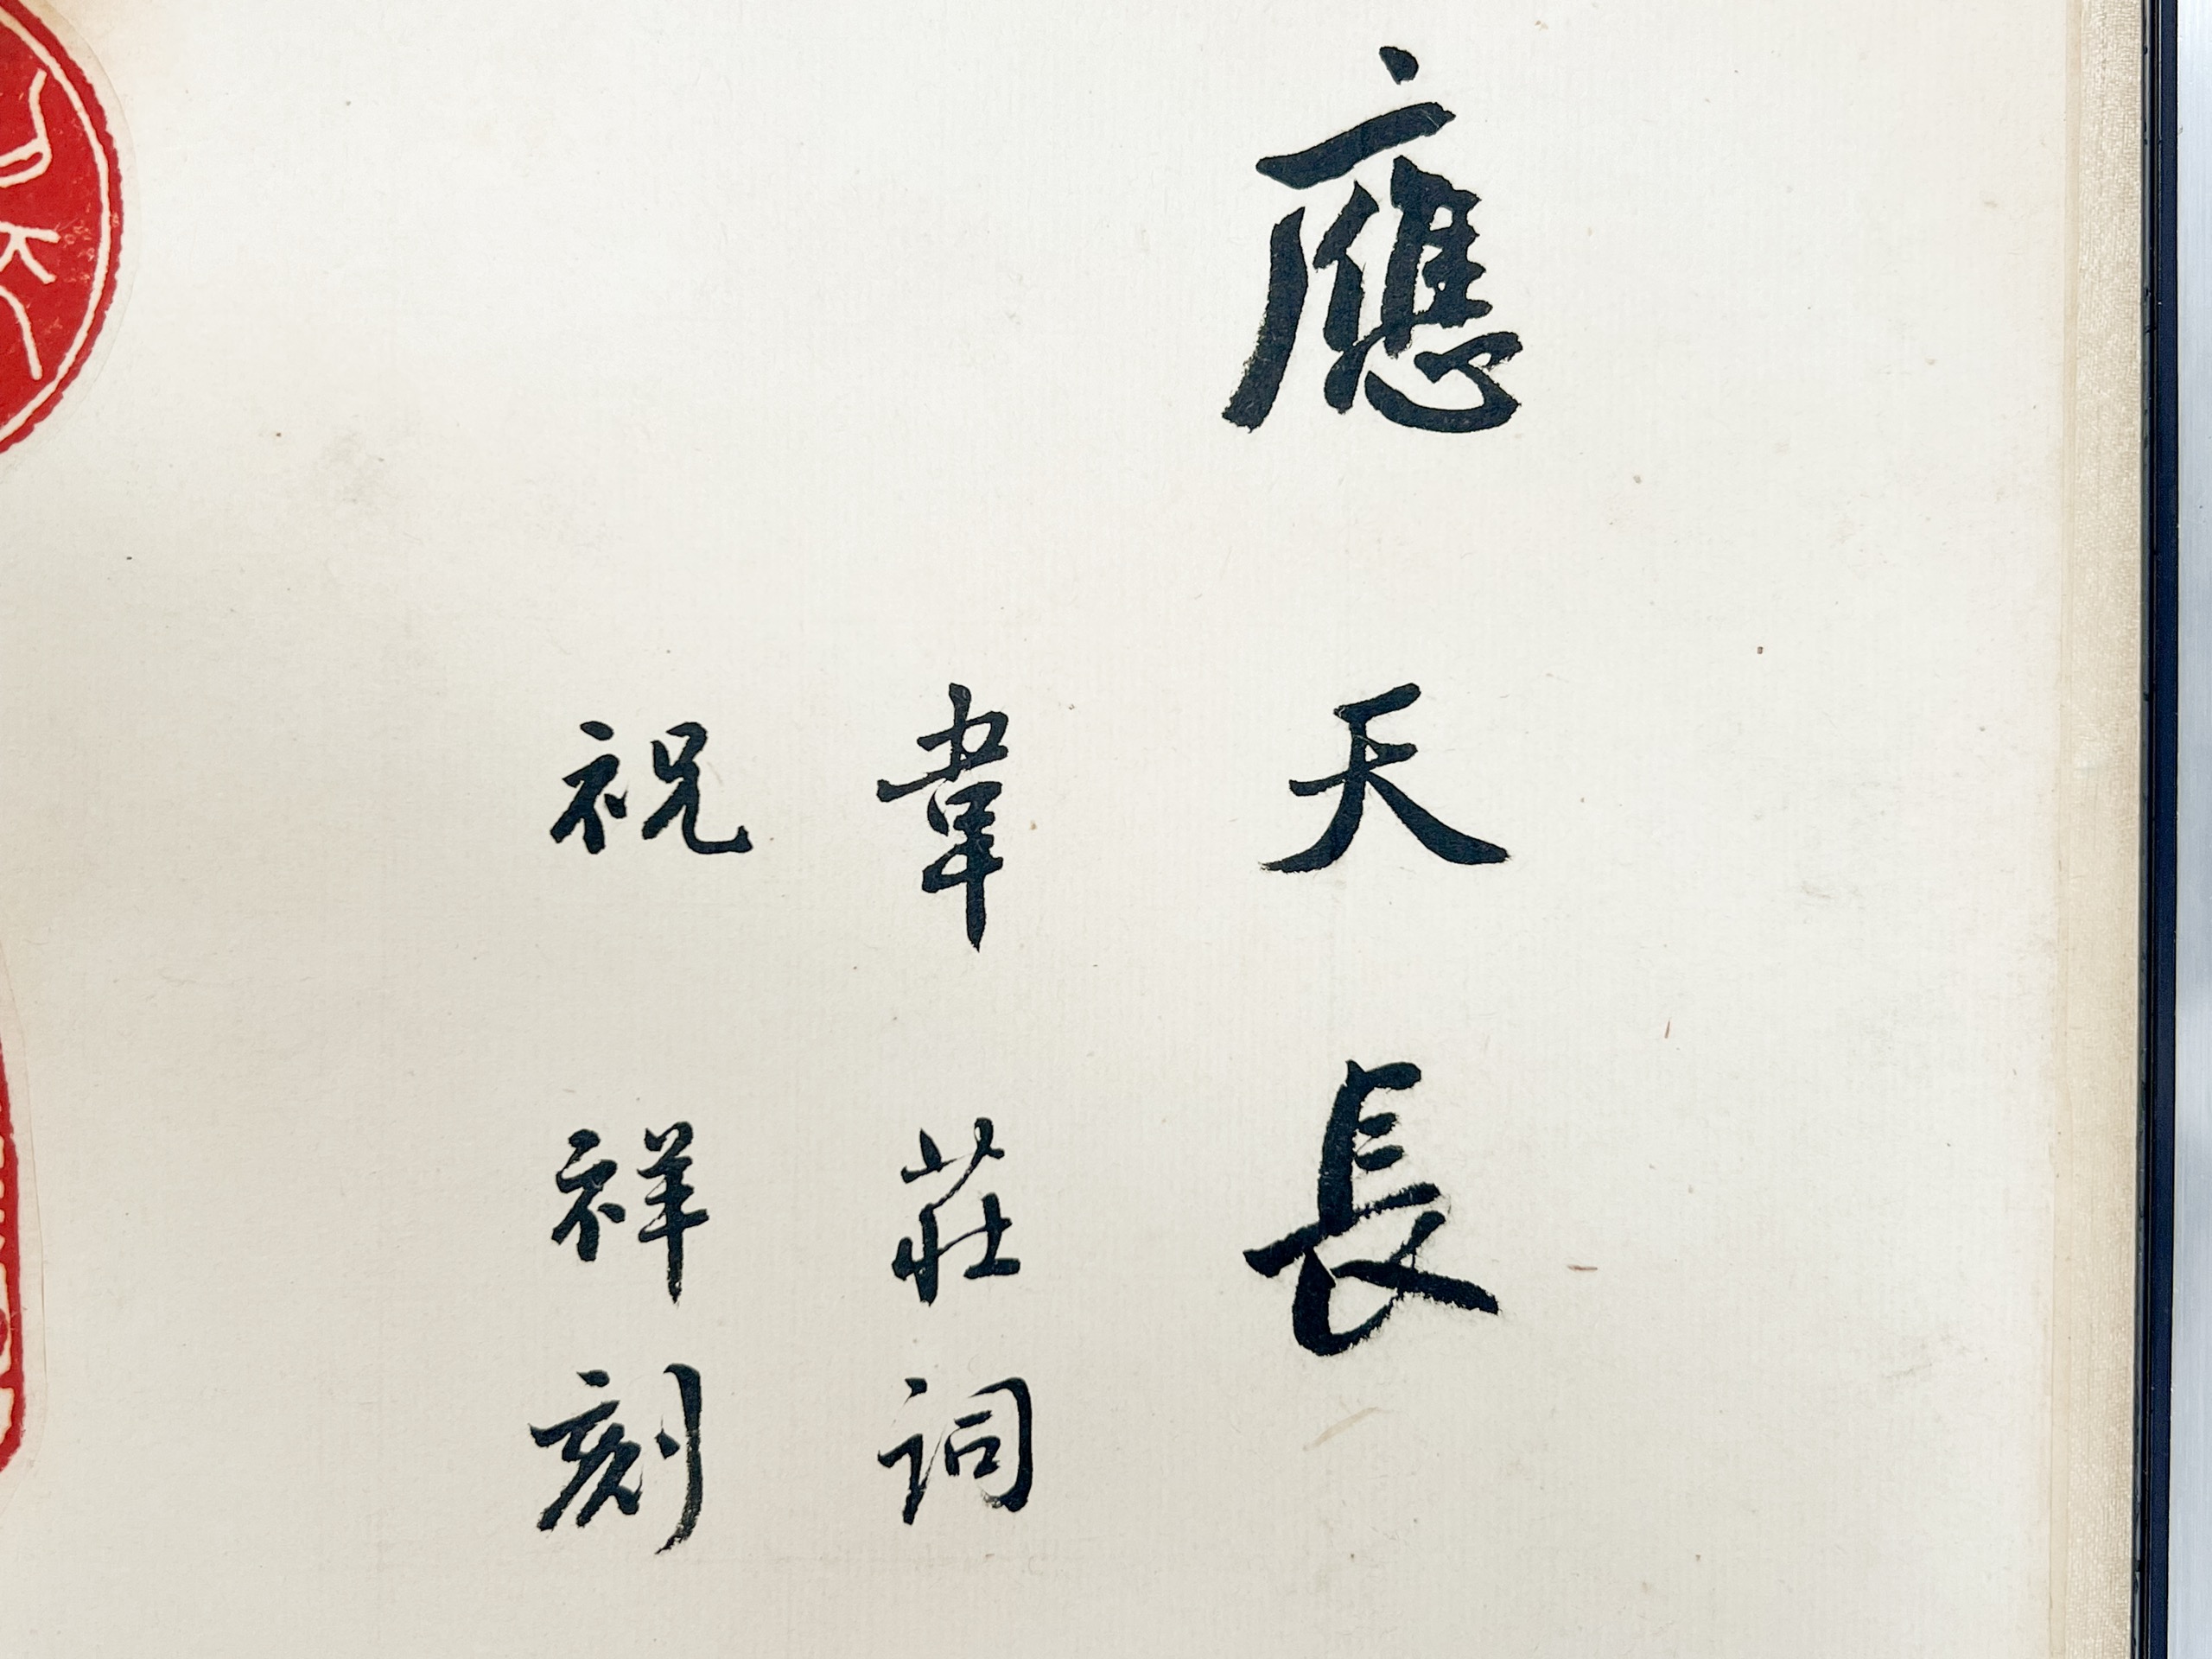 應天長
韋莊詞
祝祥刻